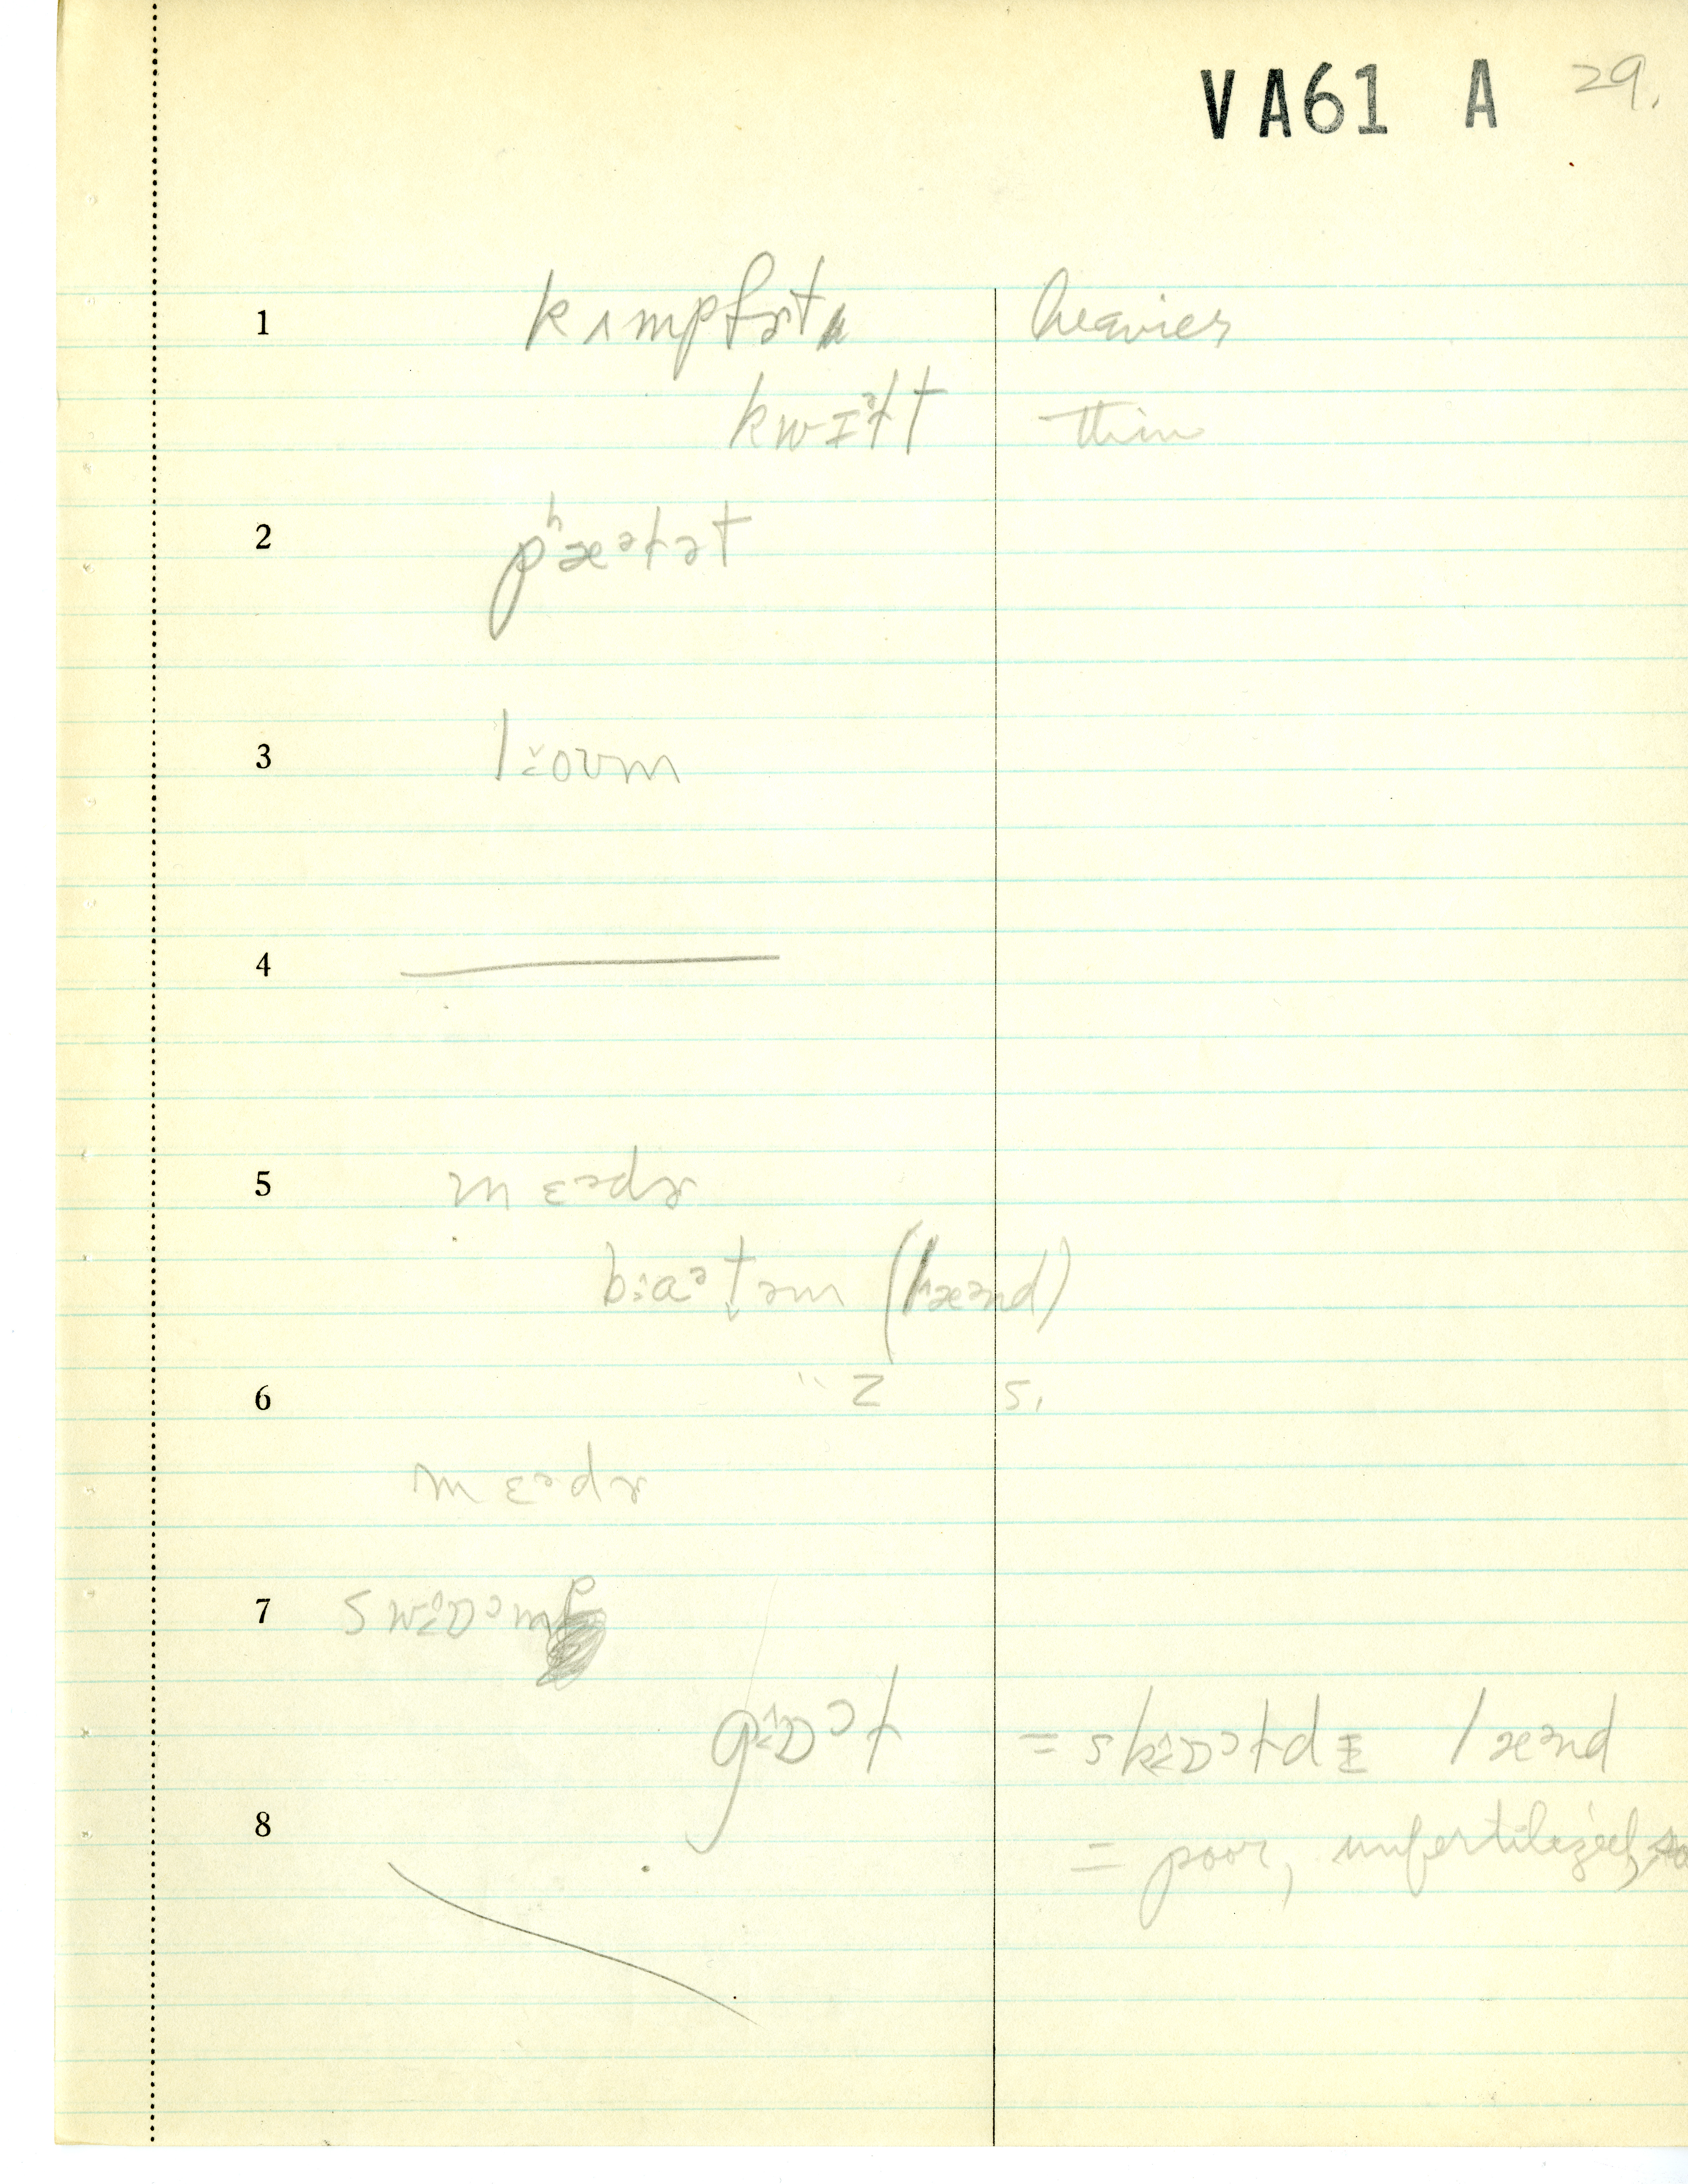 VA61 A 29.
1 kʌmpfɚt heavier
kwɪᵊɫt thin
2 pʰæᵊɫət
3 l oʊm
4
5 mɛᵊdɚ
bɑᵊtəm (læᵊnd)
6 " z s.
mɛᵊdɚ
7 swɒᵊmp
gɒᵊɫ = skɒᵊɫdɪ læᵊnd
8 = poor, unfertilized,